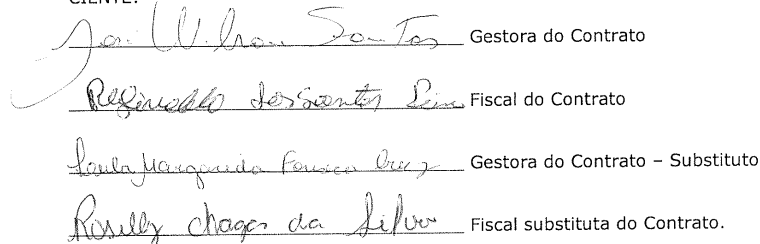 CIENTE:
Wilson Santos Gestora do Contrato
Reginaldo dos Santos Fiscal do Contrato
Margarida Fonseca Cruz Gestora do Contrato – Substituto
Rosilly Chagas da Silva Fiscal substituta do Contrato.